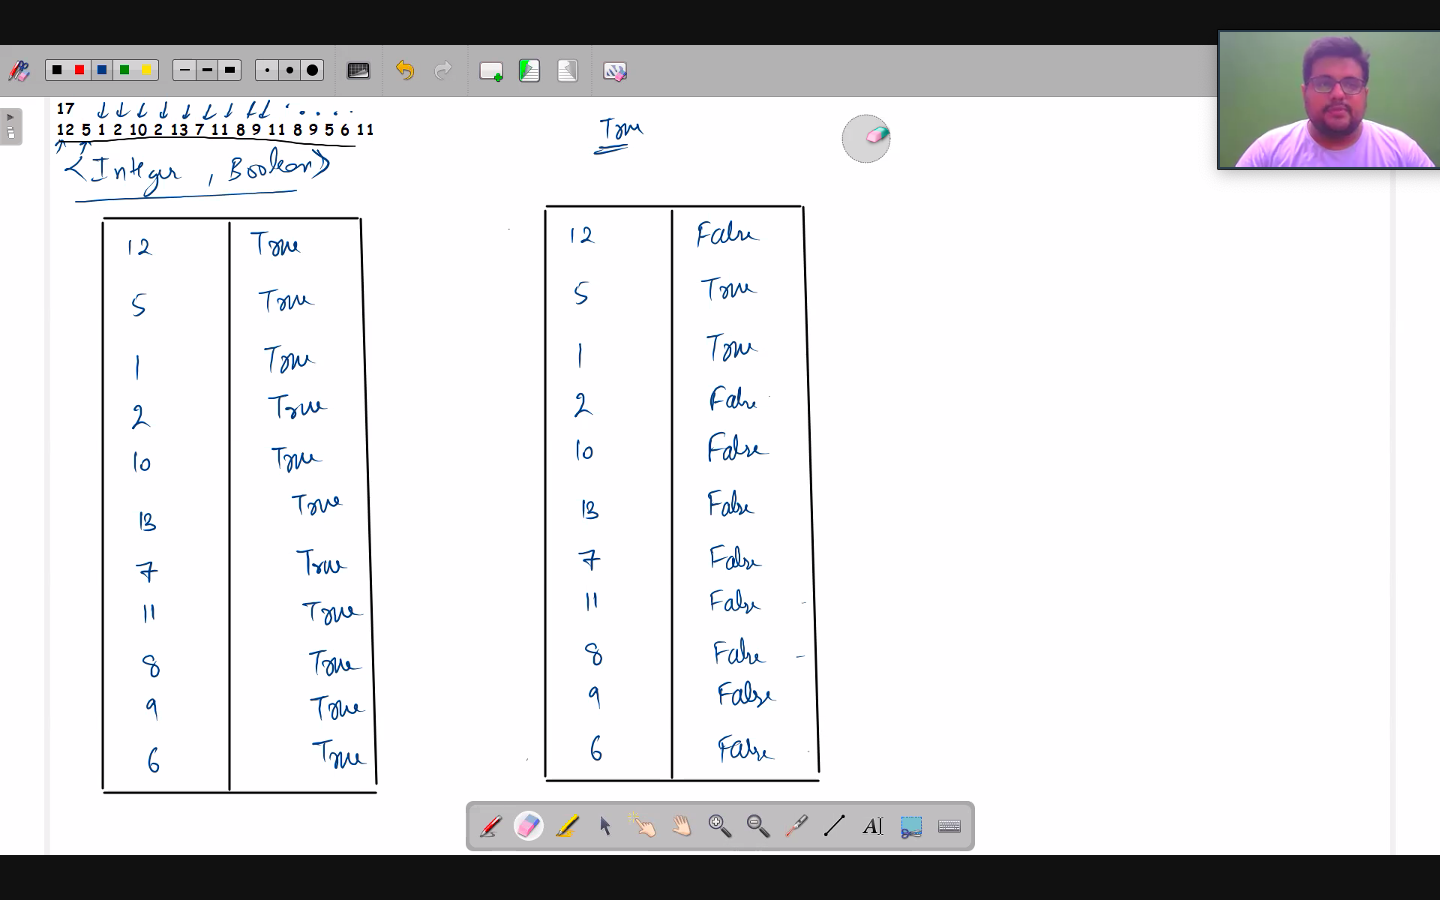 17
12 5 1 2 10 2 13 7 11 8 9 11 8 9 5 6 11
True
<Integer, Boolean>
12 True
5 True
1 True
2 True
10 True
13 True
7 True
11 True
8 True
9 True
6 True
12 False
5 True
1 True
2 False
10 False
13 False
7 False
11 False
8 False
9 False
6 False
A